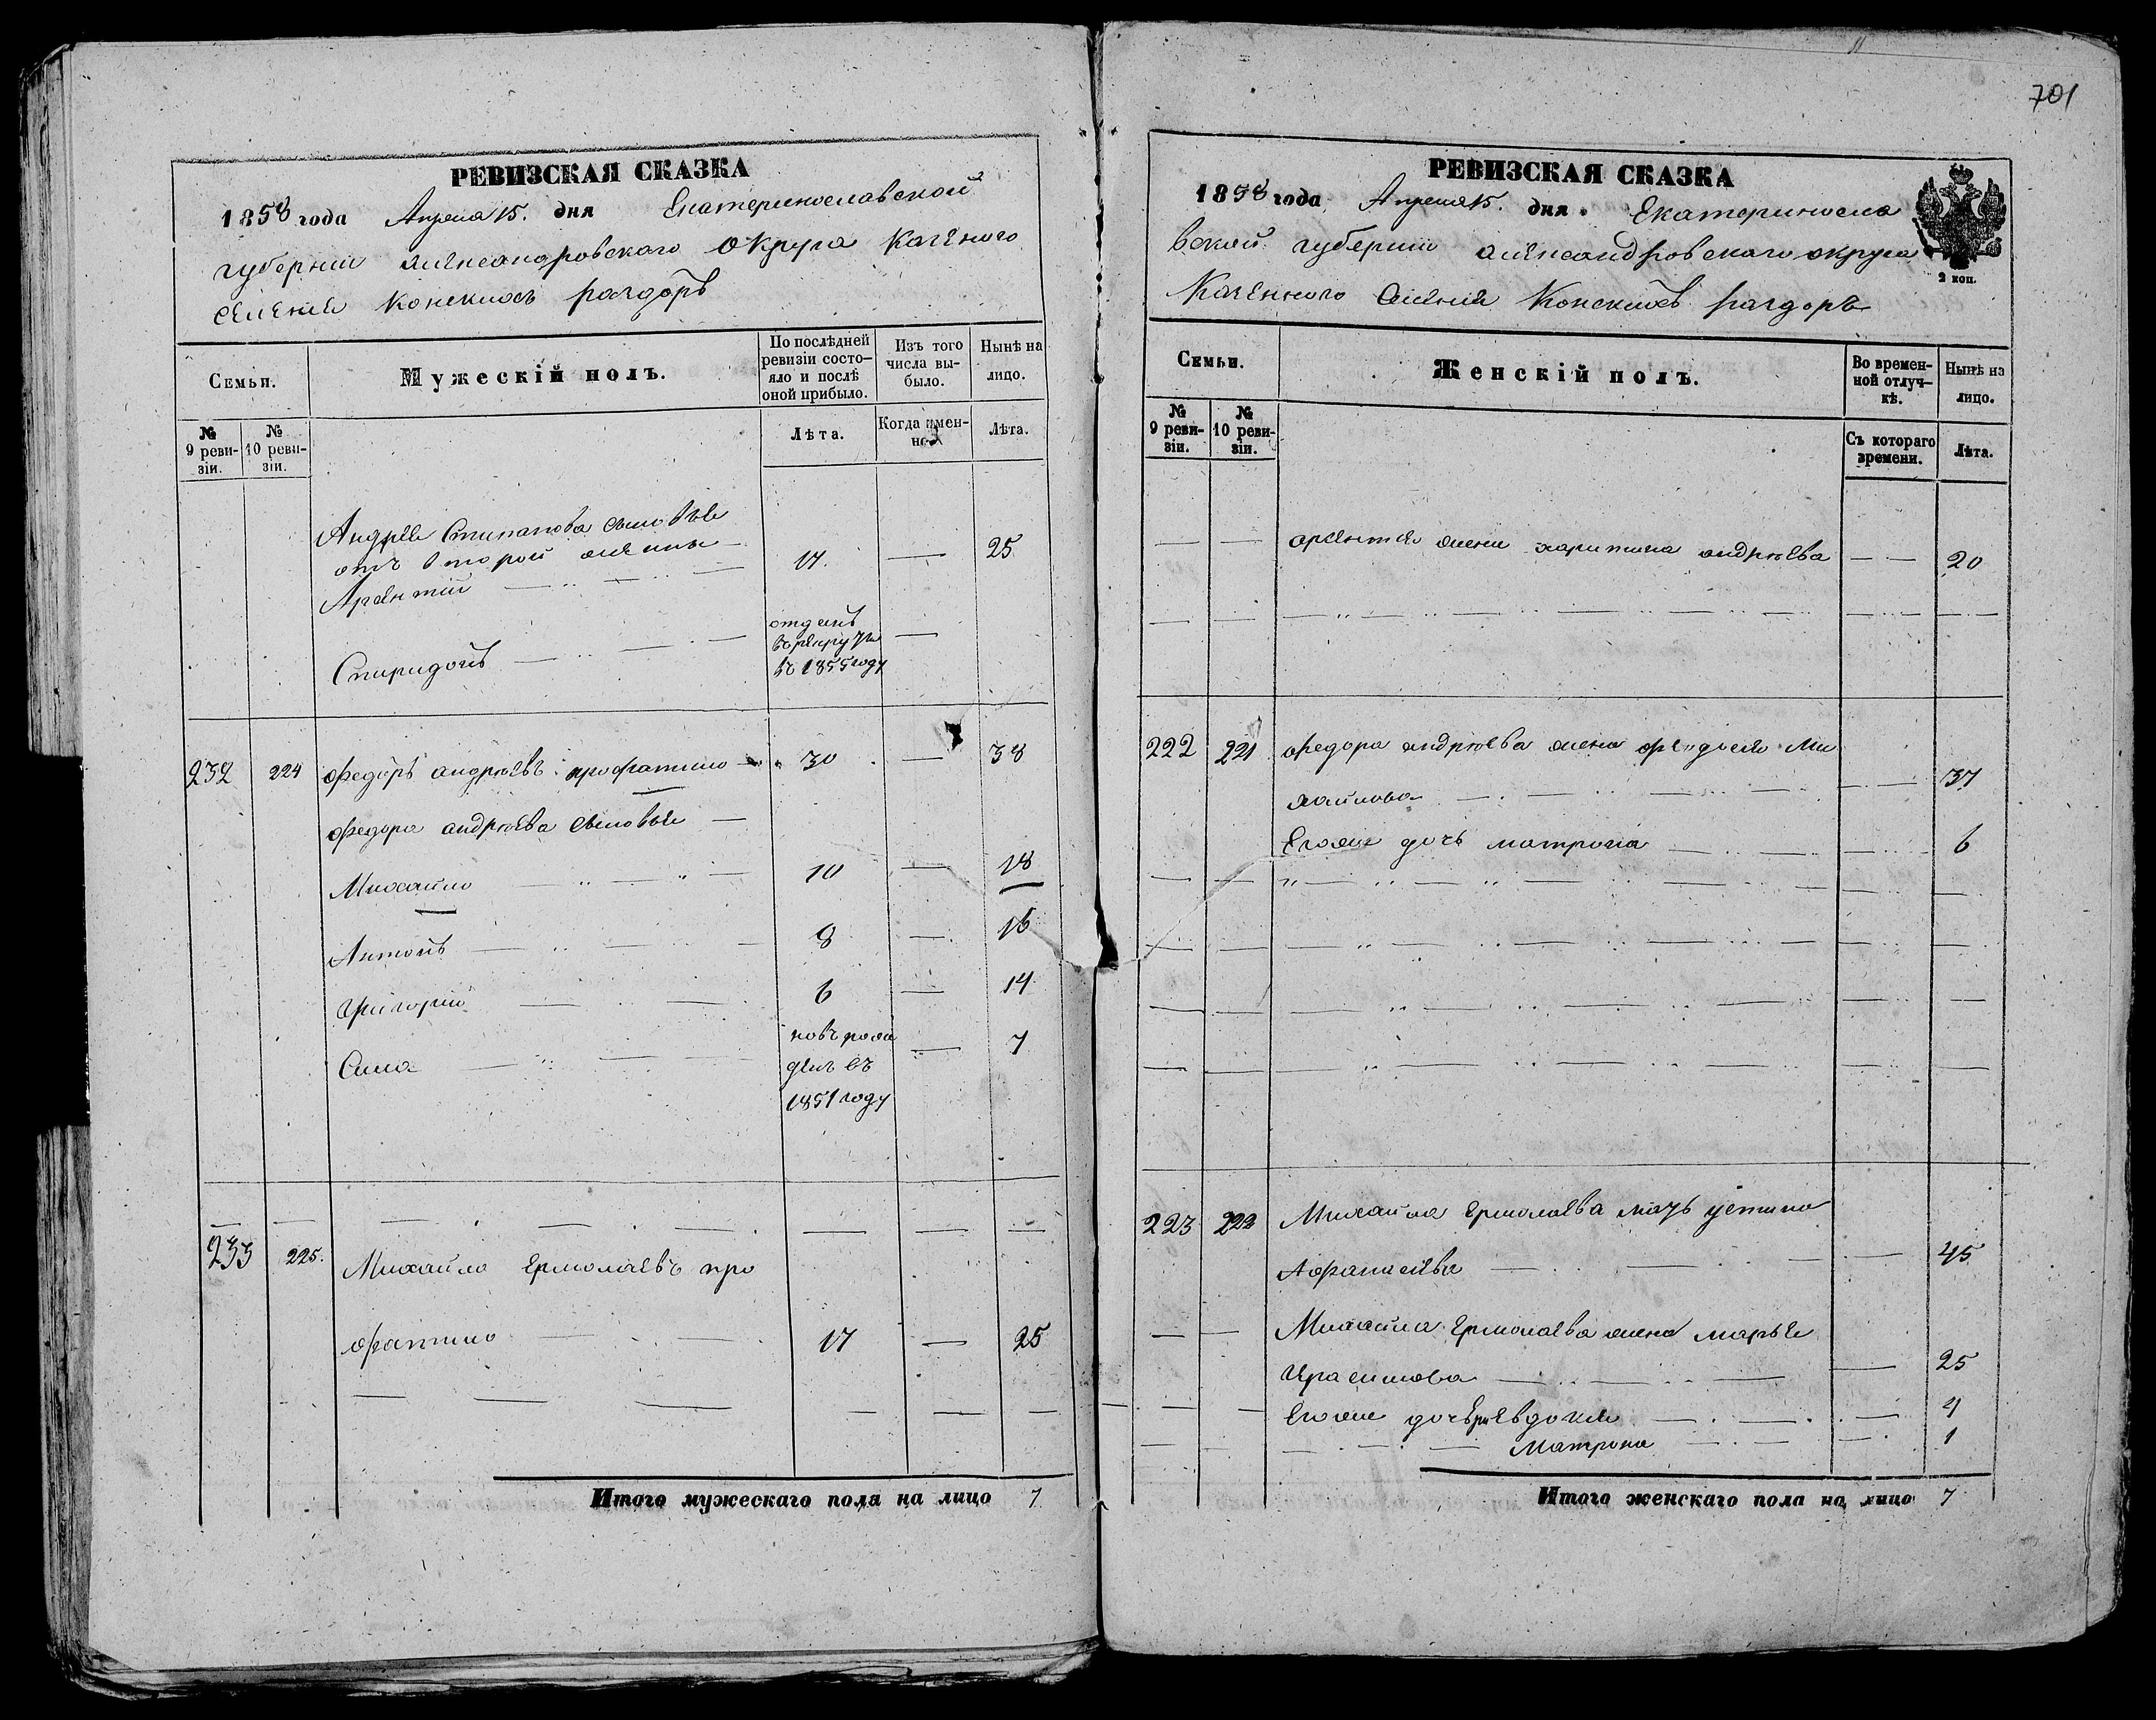 701
РЕВИЗСКАЯ СКАЗКА
1858 года Апреля 15. дня Екатеринославской
губернии александровского округа Казеного
селения Конскихъ раздоръ
Семьи.
Мужескій полъ.
По послѣдней
ревизіи состо-
яло и послѣ
оной прибыло.
Изъ того
числа вы-
было.
Нынѣ на
лицо.
№
9 реви-
зіи.
№
10 реви-
зіи.
Лѣта.
Когда имен-
но.
Лѣта.
Андрея Стипанова сыновья
отъ второй жены
Арсентій 17. — 25
Спиридонъ
отданъ
въ рекруты
въ 1855 году
—
232 224 Федоръ андреевъ профатило 30 — 38
Федора андреева сыновья —
Михайло 10 — 18
Антонъ 8 — 16
Григорий 6 — 14
Сила
новъ рож
денъ въ
1851 году
— 7
233 225. Михайло Ермолаевъ про
фатило 17 — 25
Итого мужескаго пола на лицо 7
РЕВИЗСКАЯ СКАЗКА
1858 года Апреля 15. дня Екатериносла
вской губернии александровского округа
Казенного селения Конскихъ раздоръ
2 коп.
Семьи.
Женскій полъ.
Во времен-
ной отлуч-
кѣ.
Нынѣ на
лицо.
№
9 реви-
зіи.
№
10 реви-
зіи.
Съ котораго
времени.
Лѣта.
арсентия жена харитина андреева — — 20
222 221 Федора андреева жена феядосия Ми
хайлова 37
Егоже дочь матрона 6
223 222 Михайла Ермолаева мать устина
Афанасиева 45
Михайла Ермолаева жена марья
Герасимова 25
Егоже дочери Евдокия 4
Матрона 1
Итого женскаго пола на лицо 7